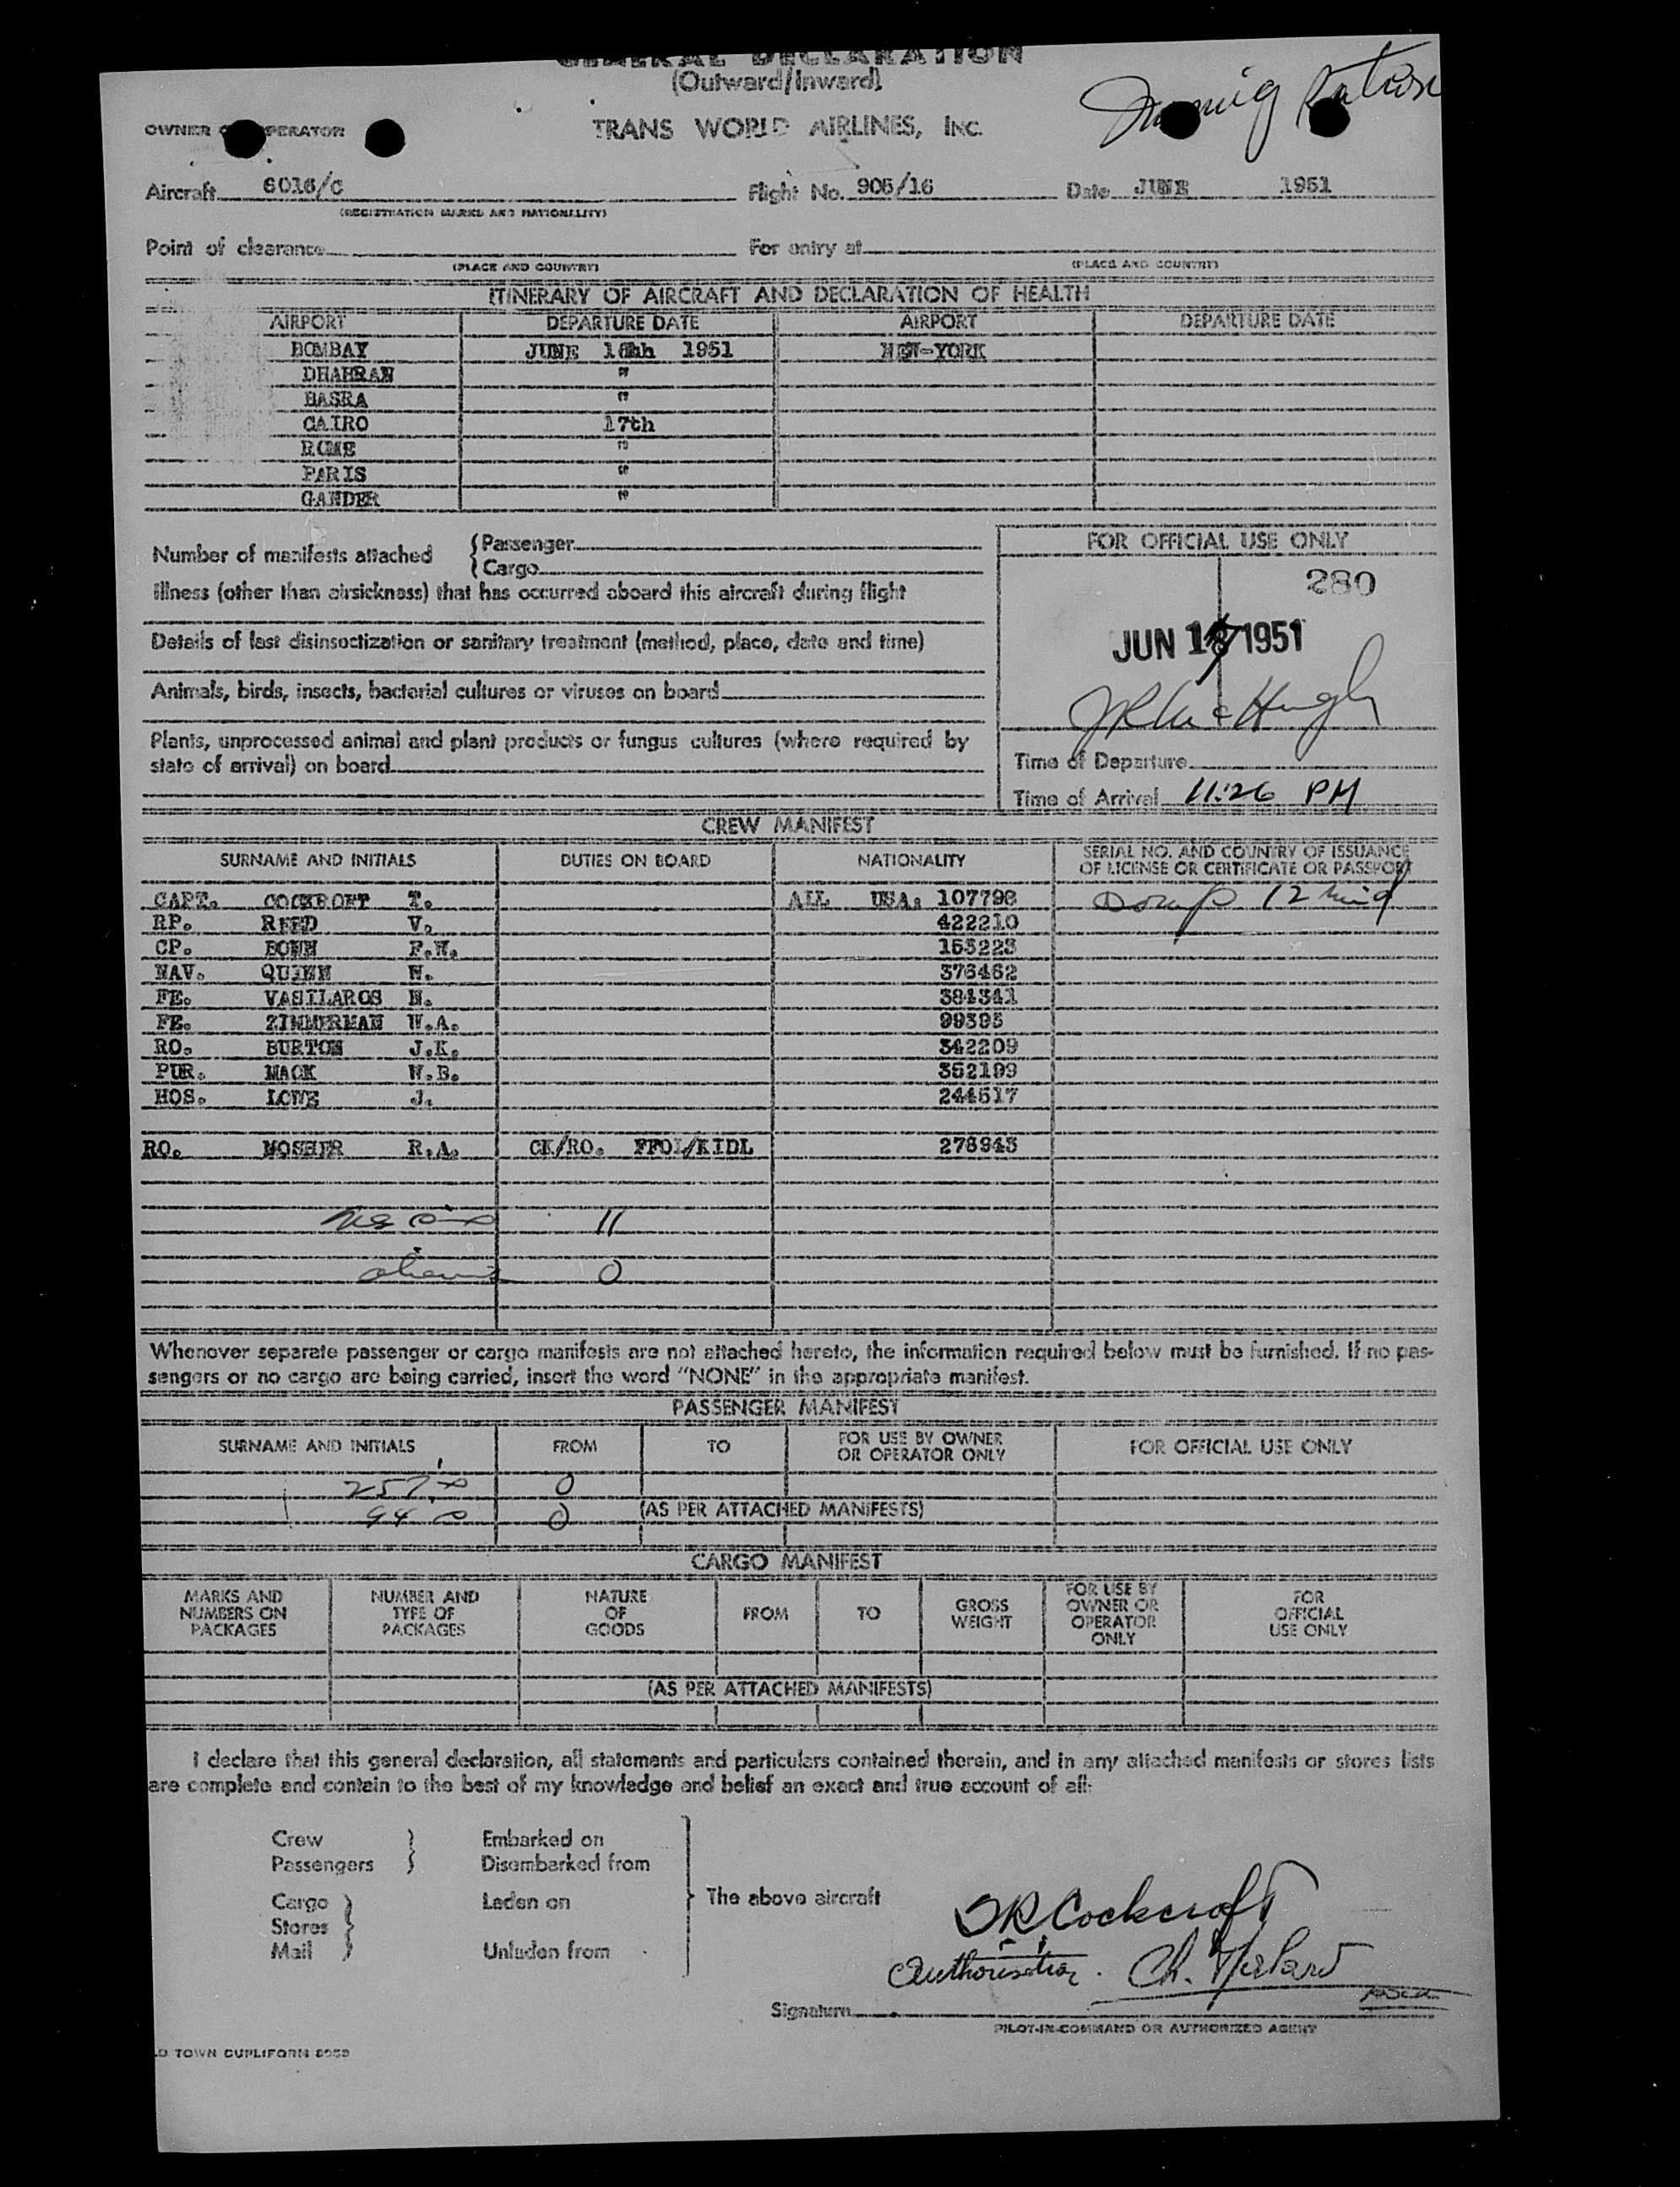 GENERAL DECLARATION
(Outward/Inward)
OWNER OPERATOR
TRANS WORLD AIRLINES, INC.
Aircraft 6016/C Flight No. 905/16 Date JUNE 1951
(REGISTRATION MARKS AND NATIONALITY)
Point of clearance For entry at
(PLACE AND COUNTRY) (PLACE AND COUNTRY)
ITINERARY OF AIRCRAFT AND DECLARATION OF HEALTH
AIRPORT DEPARTURE DATE AIRPORT DEPARTURE DATE
BOMBAY JUNE 1951 NEW-YORK
DHAHRAN "
BASRA "
CAIRO 17th
ROME "
PARIS "
GANDER "
Number of manifests attached { Passenger
{ Cargo
Illness (other than airsickness) that has occurred aboard this aircraft during flight
Details of last disinsectization or sanitary treatment (method, place, date and time)
Animals, birds, insects, bacterial cultures or viruses on board
Plants, unprocessed animal and plant products or fungus cultures (where required by
state of arrival) on board
FOR OFFICIAL USE ONLY
280
JUN 17 1951
Time of Departure
Time of Arrival 11:26 PM
CREW MANIFEST
SURNAME AND INITIALS DUTIES ON BOARD NATIONALITY SERIAL NO. AND COUNTRY OF ISSUANCE
OF LICENSE OR CERTIFICATE OR PASSPORT
CAPT. COCKROFT T. ALL USA: 107798
RP. REED V. 422210
CP. F.W. 153223
NAV. QUINN W. 376462
FE. VASILAROS N. 384341
FE. ZIMMERMAN W.A. 99395
RO. BURTON J.K. 342209
PUR. MACK W.B. 352199
HOS. LOWE J. 244517
RO. MOSHER R.A. CK/RO. FFOL/KIDL 278943
11
0
Whenever separate passenger or cargo manifests are not attached hereto, the information required below must be furnished. If no pas-
sengers or no cargo are being carried, insert the word "NONE" in the appropriate manifest.
PASSENGER MANIFEST
SURNAME AND INITIALS FROM TO FOR USE BY OWNER
OR OPERATOR ONLY FOR OFFICIAL USE ONLY
0
(AS PER ATTACHED MANIFESTS)
0
CARGO MANIFEST
MARKS AND
NUMBERS ON
PACKAGES
NUMBER AND
TYPE OF
PACKAGES
NATURE
OF
GOODS
FROM
TO
GROSS
WEIGHT
FOR USE BY
OWNER OR
OPERATOR
ONLY
FOR
OFFICIAL
USE ONLY
(AS PER ATTACHED MANIFESTS)
I declare that this general declaration, all statements and particulars contained therein, and in any attached manifests or stores lists
are complete and contain to the best of my knowledge and belief an exact and true account of all:
Crew } Embarked on
Passengers } Disembarked from
Cargo } Laden on
Stores
Mail } Unladen from
The above aircraft
Cockcroft
Signature
PILOT-IN-COMMAND OR AUTHORIZED AGENT